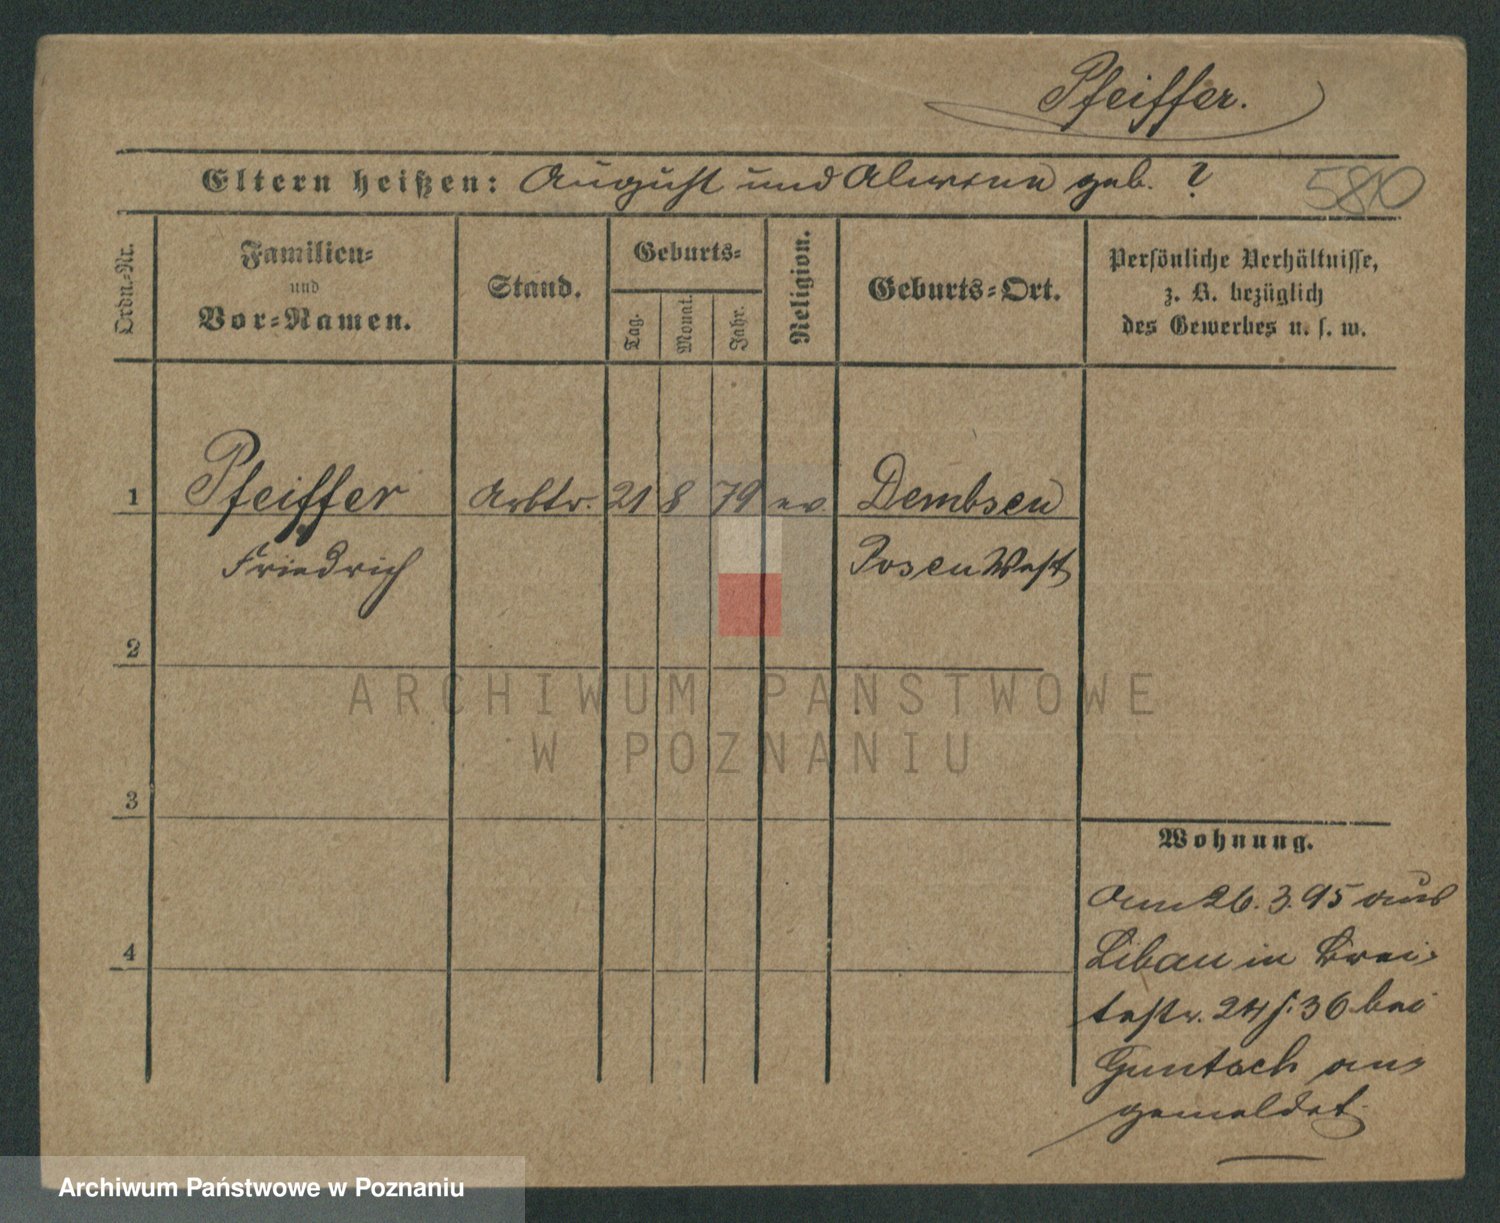 Pfeiffer.
Eltern heißen: August und Alwine geb. ?
580
Ordn.-Nr.
Familien-
und
Vor-Namen.
Stand.
Geburts-
Tag.
Monat.
Jahr.
Religion.
Geburts-Ort.
Persönliche Verhältnisse,
z. B. bezüglich
des Gewerbes u. s. w.
1 Pfeiffer Arbtr. 21 8 79 ev Dembsen
Friedrich Posen West
2
ARCHIWUM PAŃSTWOWE
W POZNANIU
3
Wohnung.
26.3.95 aus
4
Libau in Brei-
testr. 24 36 bei
Guntsch an-
gemeldet.
Archiwum Państwowe w Poznaniu